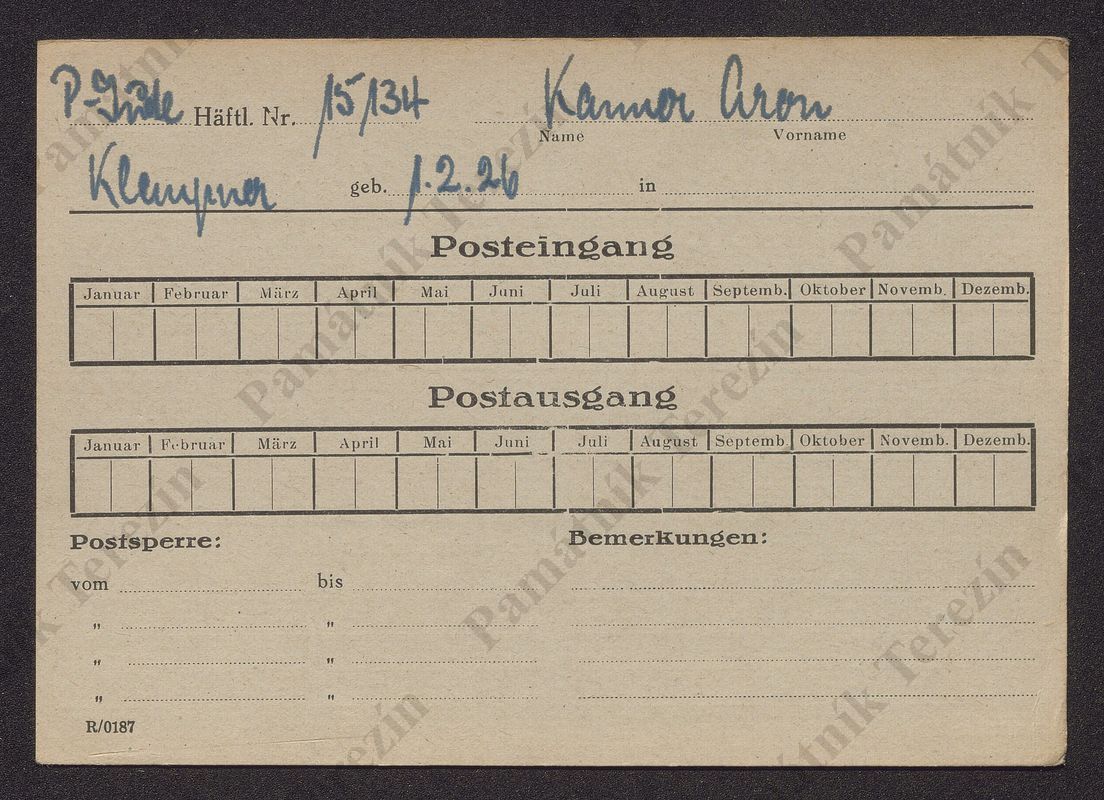 P-Jude Häftl. Nr. 15134 Kanner Aron
Name Vorname
Klempner geb. 1.2.26 in
Posteingang
Januar Februar März April Mai Juni Juli August Septemb. Oktober Novemb. Dezemb.
Postausgang
Januar Februar März April Mai Juni Juli August Septemb. Oktober Novemb. Dezemb.
Postsperre: Bemerkungen:
vom bis
" "
" "
" "
R/0187
Památník Terezín